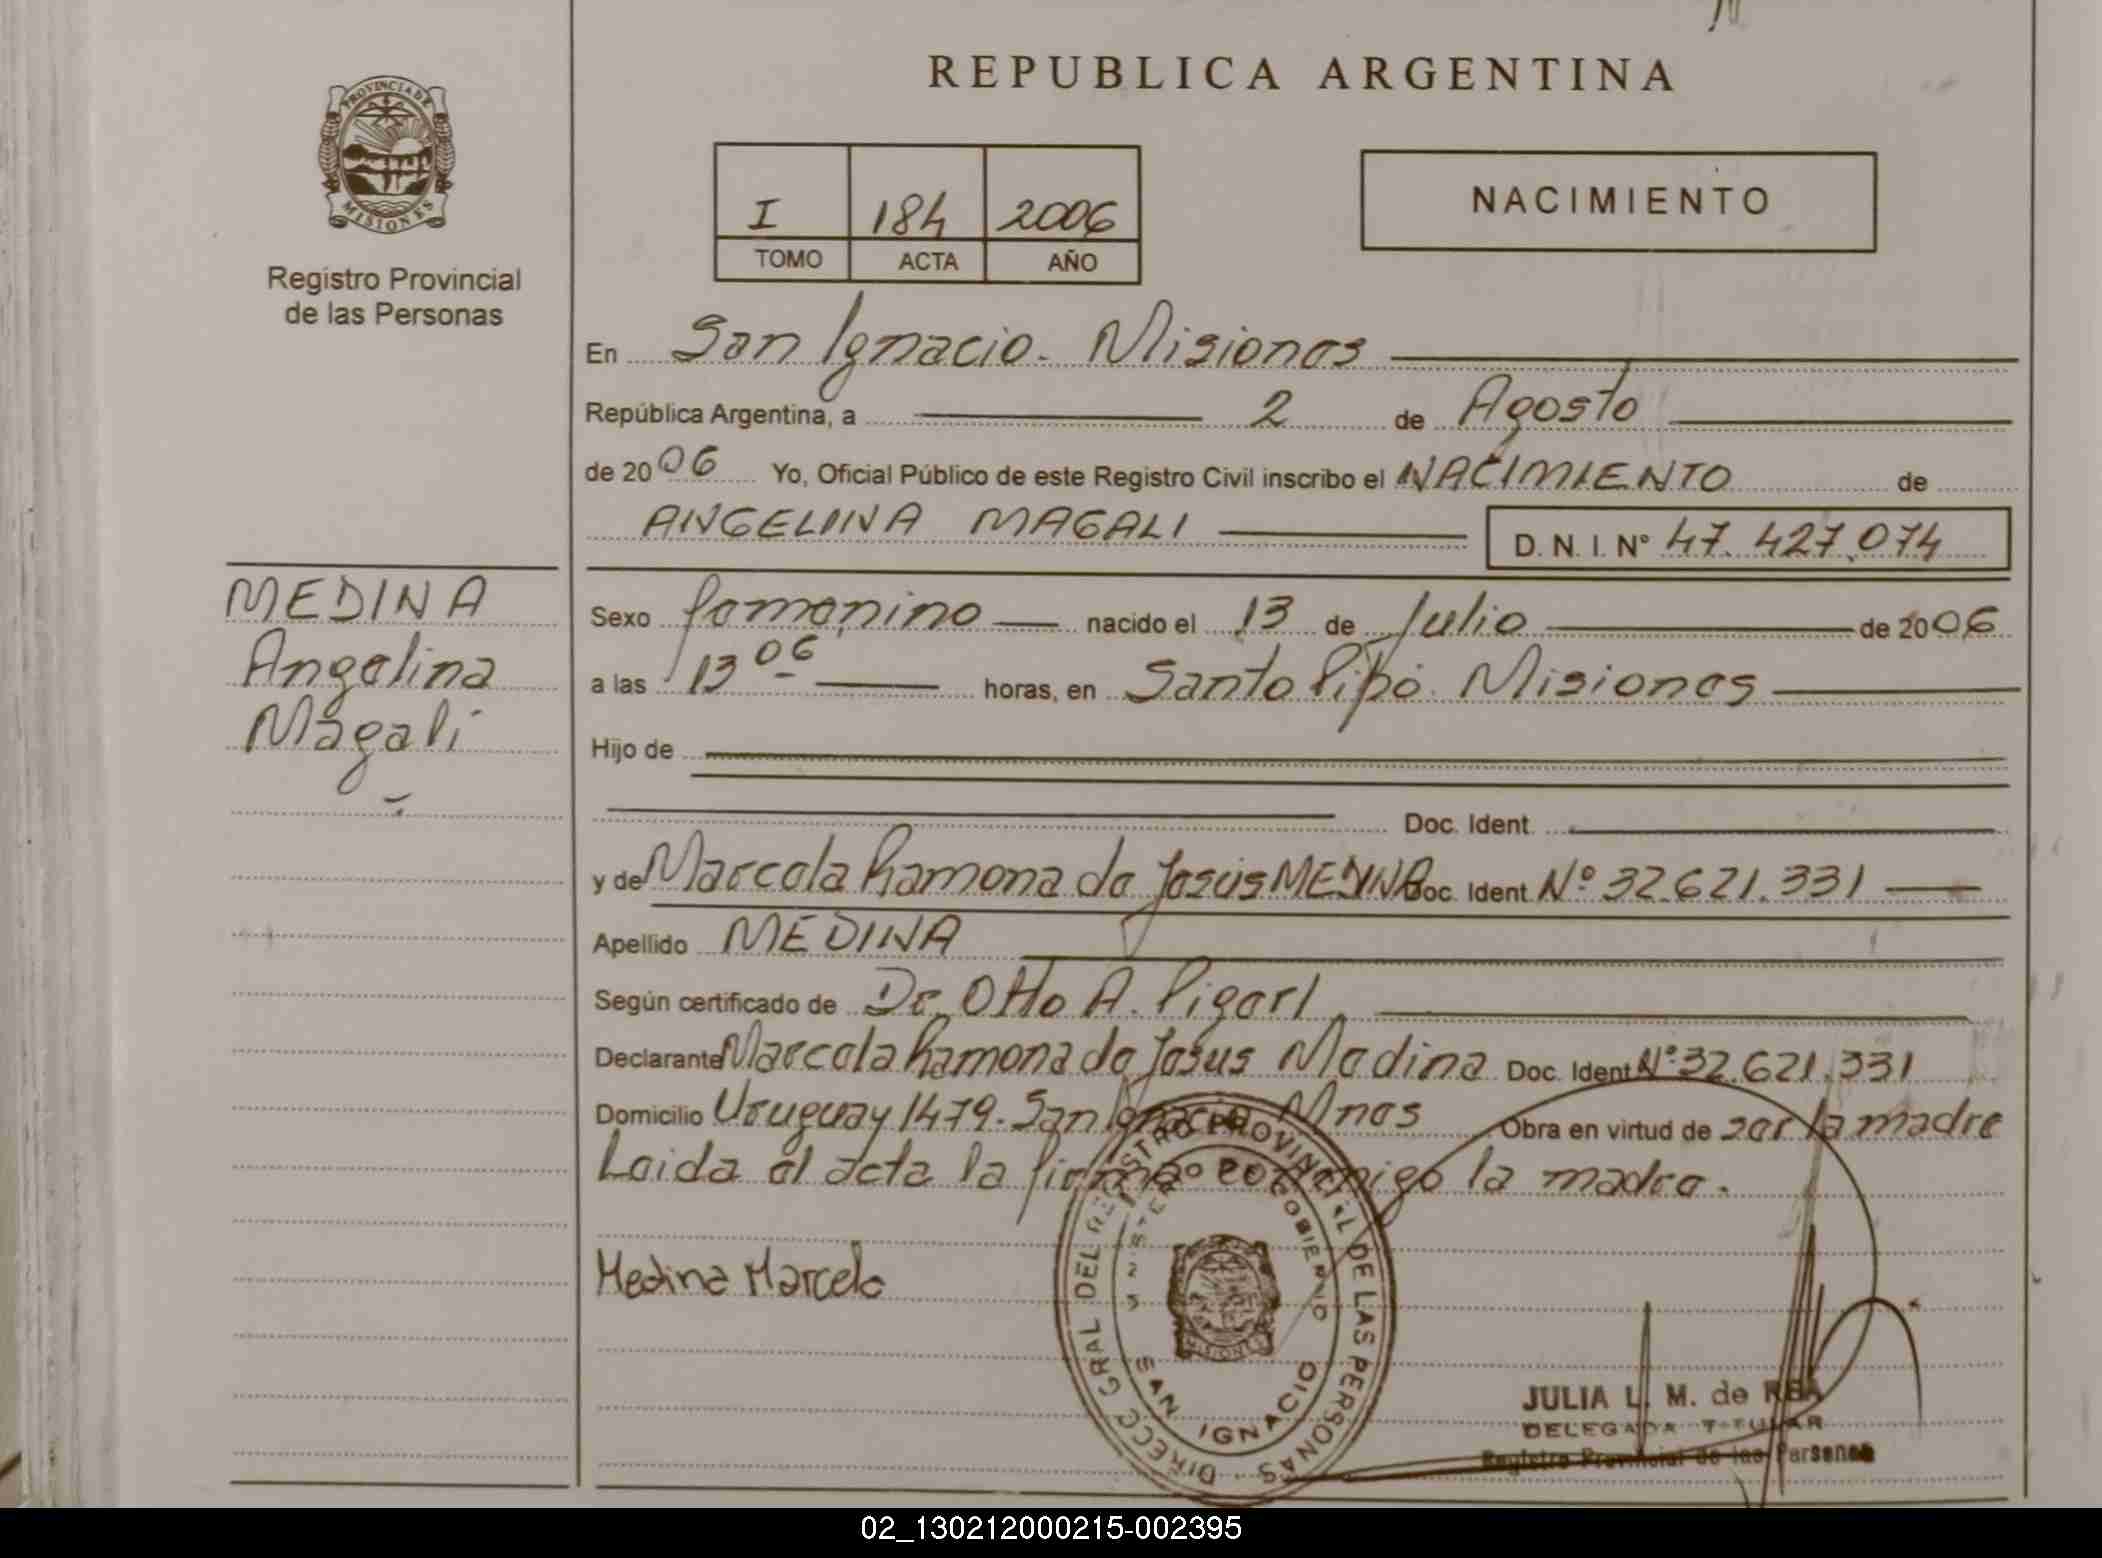 REPUBLICA ARGENTINA
PROVINCIA DE
MISIONES
Registro Provincial
de las Personas
I 184 2006
TOMO ACTA AÑO
NACIMIENTO
En San Ignacio. Misiones
República Argentina, a 2 de Agosto
de 2006 Yo, Oficial Público de este Registro Civil inscribo el NACIMIENTO de
ANGELINA MAGALI D. N. I. Nº 47.427.074
MEDINA
Angelina
Magali
Sexo femenino nacido el 13 de Julio de 2006
a las 13 06 horas, en Santo Pipó. Misiones
Hijo de
Doc. Ident.
y de Marcela Ramona de Jesús MEDINA Doc. Ident. Nº 32.621.331
Apellido MEDINA
Según certificado de Dr. Otto A.
Declarante Marcela Ramona de Jesus Medina Doc. Ident. Nº 32.621.331
Domicilio Uruguay 1479. San Ignacio Mnes Obra en virtud de ser la madre
Leida el acta la firma conmigo la madre.
Medina Marcela
DIRECC GRAL DEL REGISTRO PROVINCIAL DE LAS PERSONAS
GOBIERNO
MISIONES
SAN IGNACIO
JULIA L. M. de REA
DELEGADA TITULAR
Registro Provincial de las Personas
02_130212000215-002395